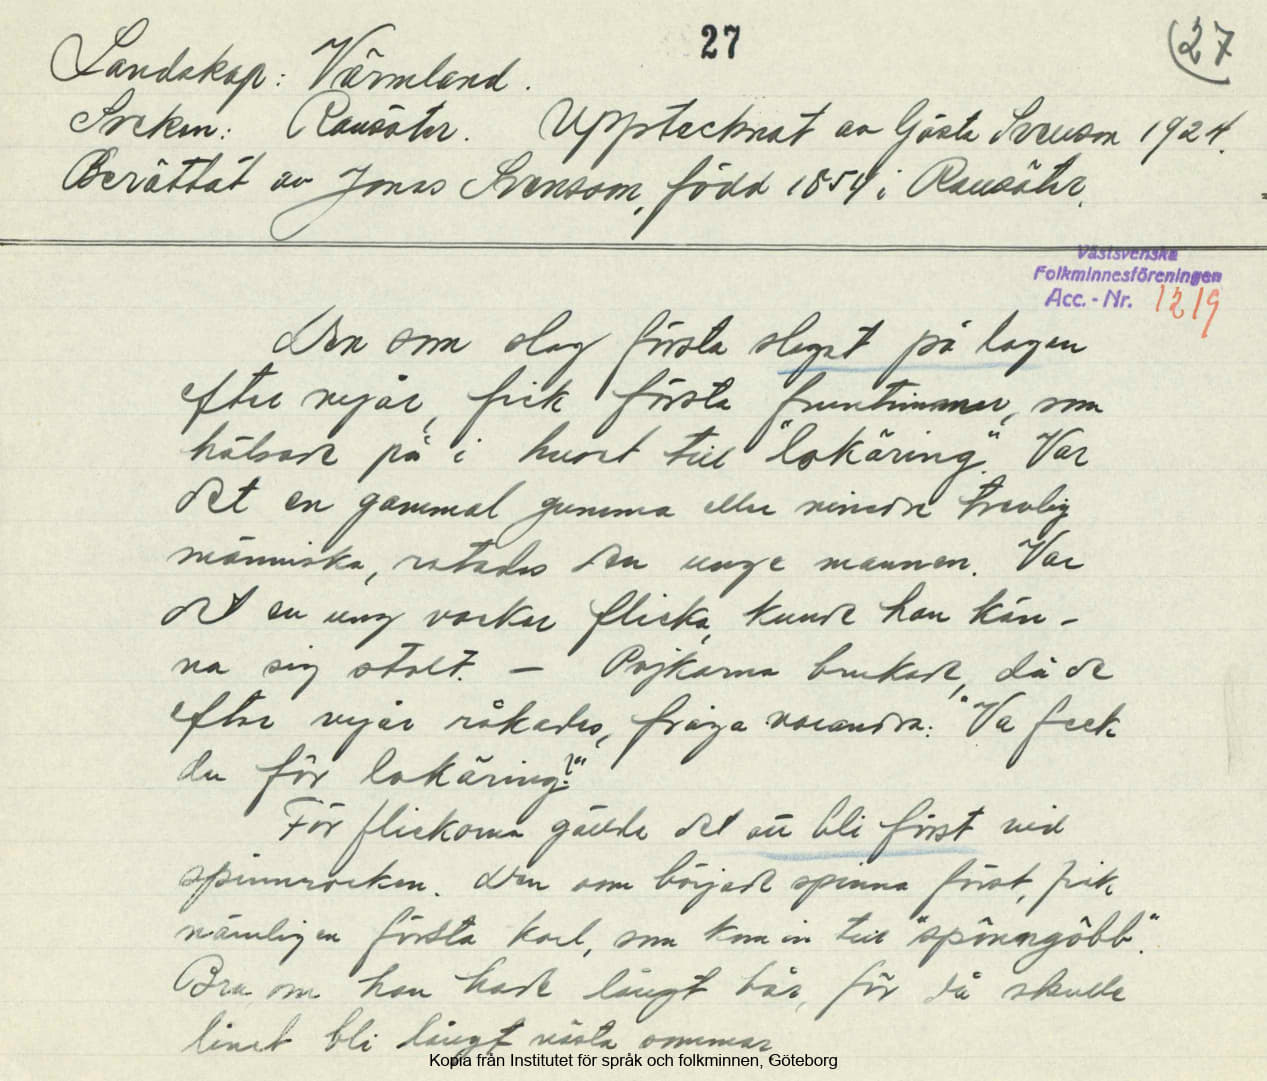 27
(27
Landskap: Värmland.
Socken: Ransäter. Upptecknat av Gösta Svenson 1924.
Berättat av Jonas Svensson, född 1854 i Ransäter.
Västsvenska
Folkminnesföreningen
Acc. - Nr. 1219
Den som slog första slaget på logen
efter nyår, fick första fruntimmer, som
hälsade på i huset till "lokäring". Var
det en gammal gumma eller mindre trevlig
människa, retades den unge mannen. Var
det en ung vacker flicka, kunde han kän-
na sig stolt. — Pojkarna brukade, då de
efter nyår råkades, fråga varandra: "Va feck
du för lokäring?"
För flickorna gällde det att bli först vid
spinnrocken. Den som började spinna först, fick
nämligen första karl, som kom in till "spönngöbb".
Bra om han hade långt hår, för då skulle
linet bli långt nästa sommar.
Kopia från Institutet för språk och folkminnen, Göteborg